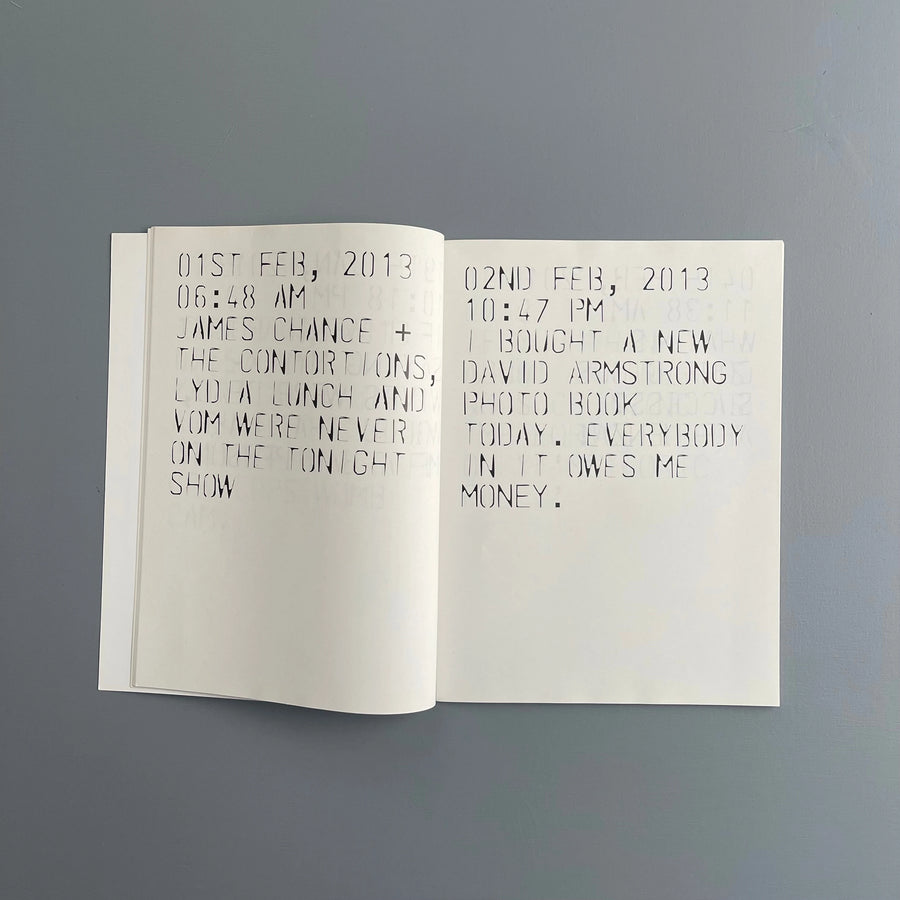 01ST FEB, 2013
06:48 AM
JAMES CHANCE +
THE CONTORTIONS,
LYDIA LUNCH AND
VOM WERE NEVER
ON THE TONIGHT
SHOW
02ND FEB, 2013
10:47 PM
I BOUGHT A NEW
DAVID ARMSTRONG
PHOTO BOOK
TODAY. EVERYBODY
IN IT OWES ME
MONEY.